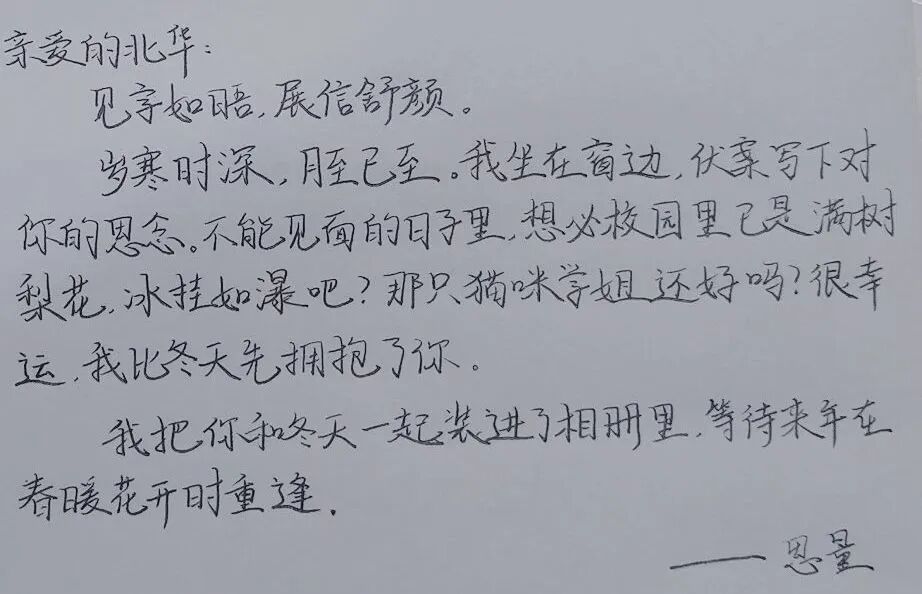 亲爱的北华：
见字如晤，展信舒颜。
岁寒时深，月至已至。我坐在窗边，伏案写下对
你的思念。不能见面的日子里，想必校园里已是满树
梨花，冰挂如瀑吧？那只猫咪学姐还好吗？很幸
运，我比冬天先拥抱了你。
我把你和冬天一起装进了相册里，等待来年在
春暖花开时重逢．
——思量